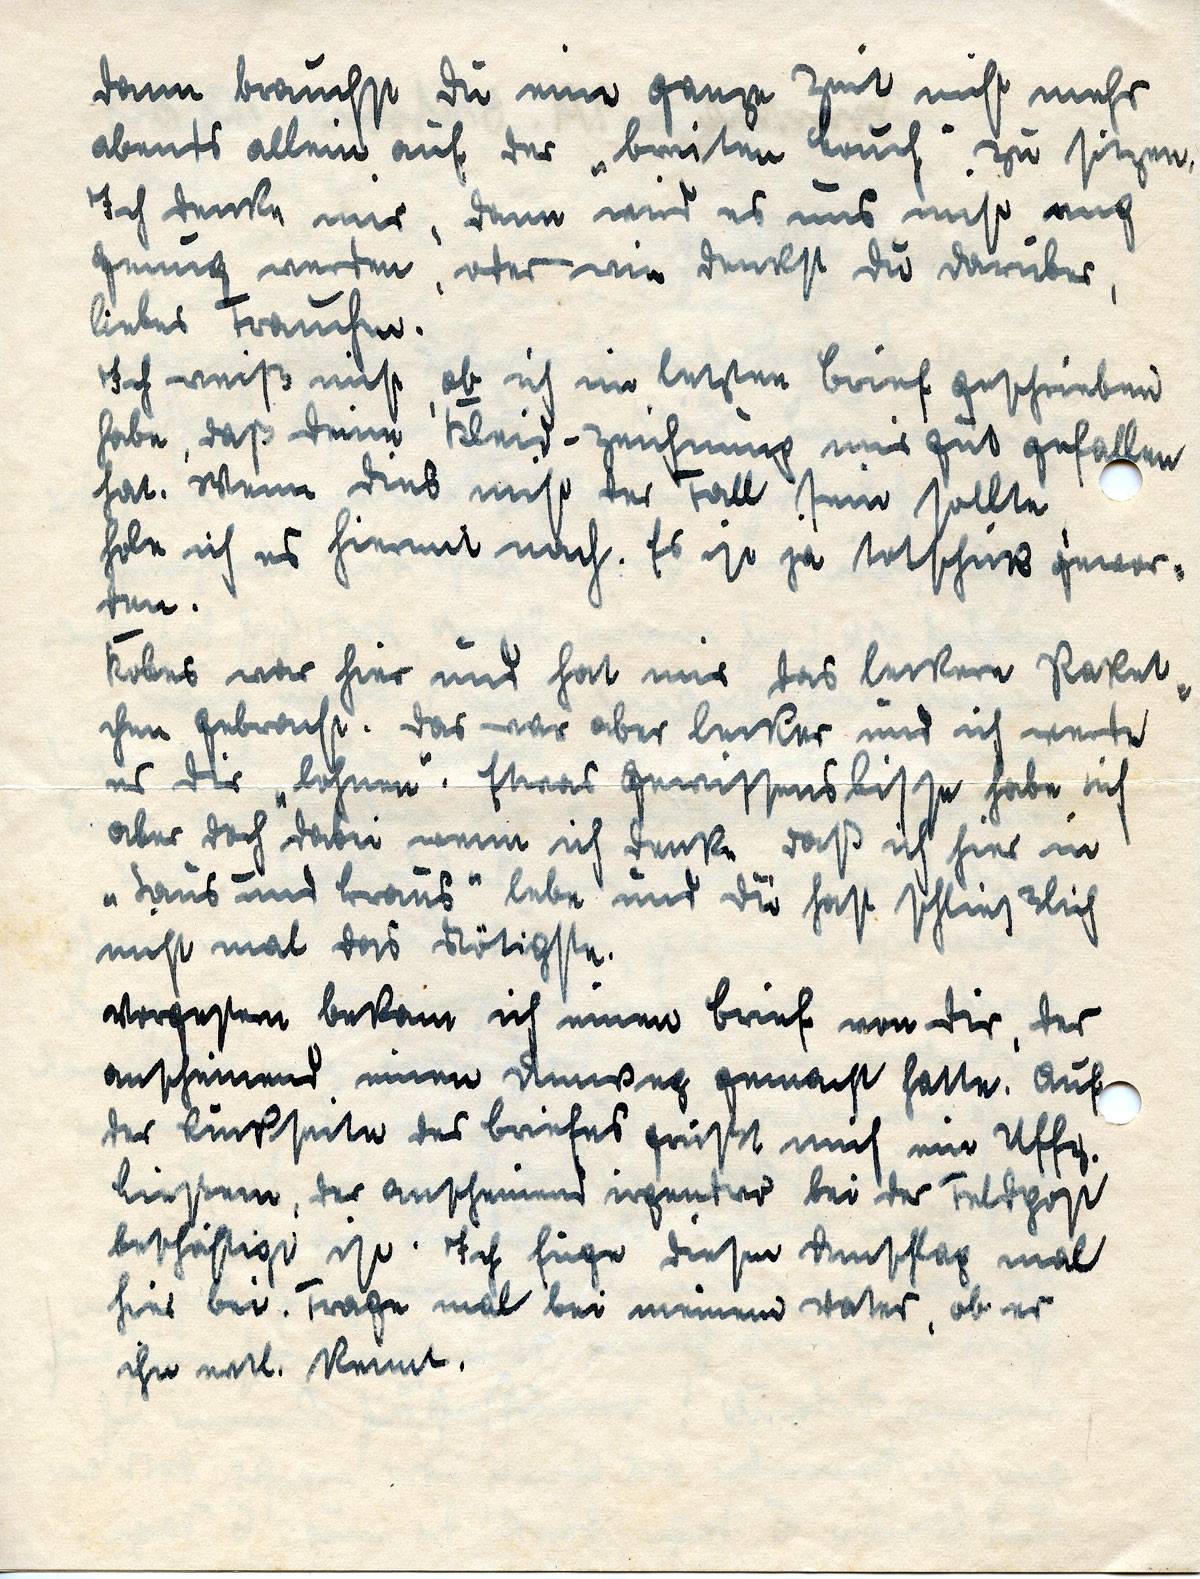 dann brauchst Du eine ganze Zeit nicht mehr
abends allein auf der „breiten Couch" zu sitzen.
Ich denke mir, dann wird es uns nicht eng
genug werden, oder wie denkst Du darüber,
liebes Frauchen.
Ich weiß nicht, ob ich im letzten Brief geschrieben
habe, daß Deine Kleid-Zeichnung mir gut gefallen
hat. Wenn dies nicht der Fall sein sollte,
hole ich es hiermit nach. Es ist ja totschick gewor-
den.
Kobes war hier und hat mir das leckere Paket-
chen gebracht. Das war aber lecker und ich werde
es Dir „lohnen". Etwas Gewissensbisse habe ich
aber doch dabei wenn ich denke daß ich hier in
„Saus und Braus" lebe und Du hast schließlich
nicht mal das Nötigste.
Vorgestern bekam ich einen Brief von Dir, der
anscheinend einen Umweg gemacht hatte. Auf
der Rückseite des Briefes grüßt mich ein Uffz.
der anscheinend irgendwo bei der Feldpost
beschäftigt ist. Ich füge diesen Umschlag mal
hier bei. Frage mal bei meinem Vater, ob er
ihn evtl. kennt.